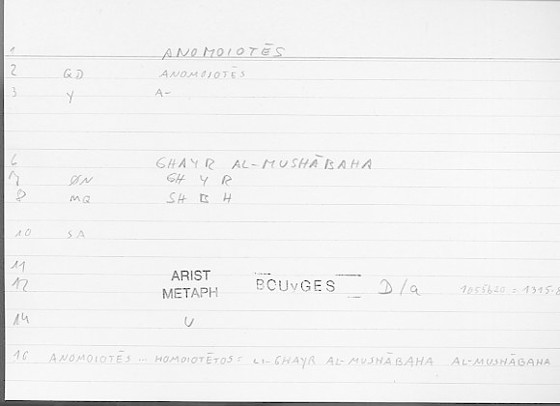 1 ANOMOIOTĒS
2 GD ANOMOIOTĒS
3 Y A-
6 GHAYR AL-MUSHĀBAHA
7 ØN GH Y R
8 MQ SH B H
10 SA
11 ARIST
12 METAPH BOUYGES D/a
14 U
16 ANOMOIOTĒS - HOMOIOTĒTOS = GHAYR AL-MUSHĀBAHA AL-MUSHĀBAHA